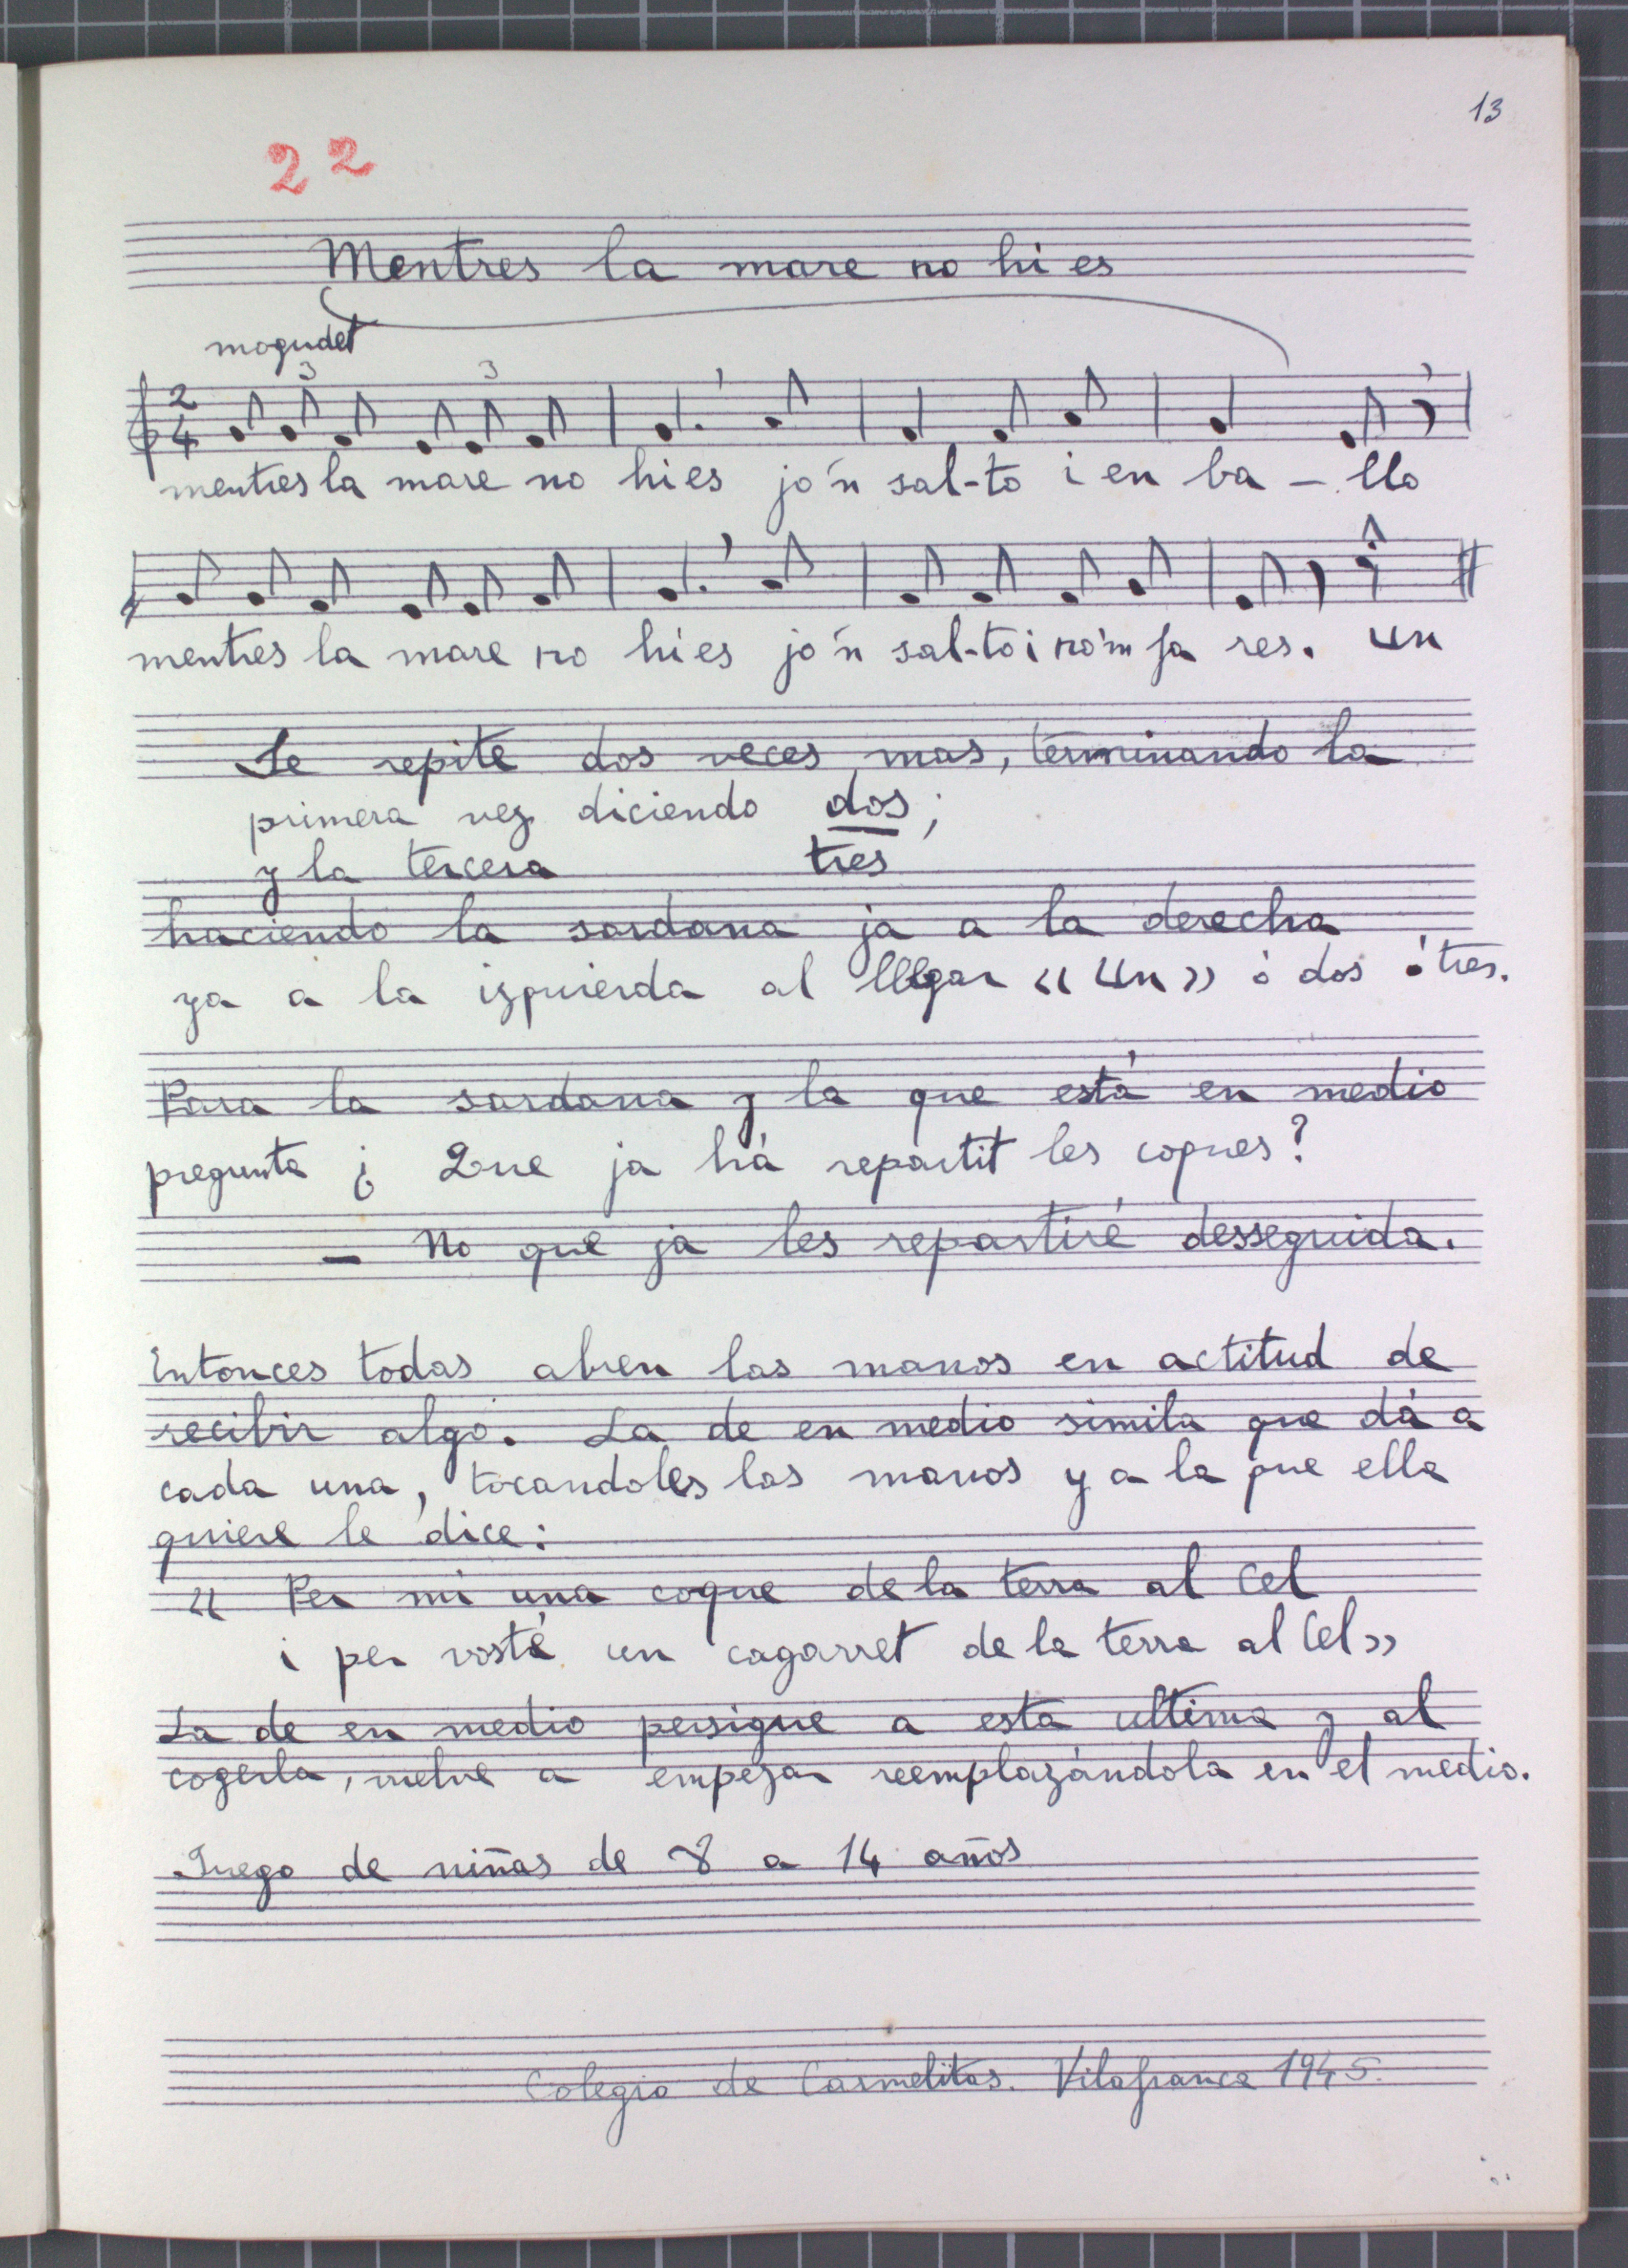 13
22
Mentres la mare no hi es
mogudet
3 3
2
4
mentres la mare no hi es jo'n sal-to i en ba - llo
mentres la mare no hi es jo'n sal-to i no'm fa res. un
Se repite dos veces mas, terminando la
primera vez diciendo dos;
y la tercera tres
haciendo la sardana ja a la derecha
ya a la izquierda al llegar « un » ó dos ó tres.
Para la sardana y la que está en medio
pregunta ¿ Que ja há repartit les coques?
- No que ja les repartiré desseguida.
Entonces todas abren las manos en actitud de
recibir algo. La de en medio simila que dá a
cada una, tocandoles las manos y a la que ella
quiere le dice:
« Per mi una coque de la terra al Cel
i per vosté un cagarret de la terra al Cel»
La de en medio persigue a esta ultima y al
cogerla, vuelve a empezar reemplazándola en el medio.
Juego de niñas de 8 a 14 años
Colegio de Carmelitas. Vilafranca 1945.